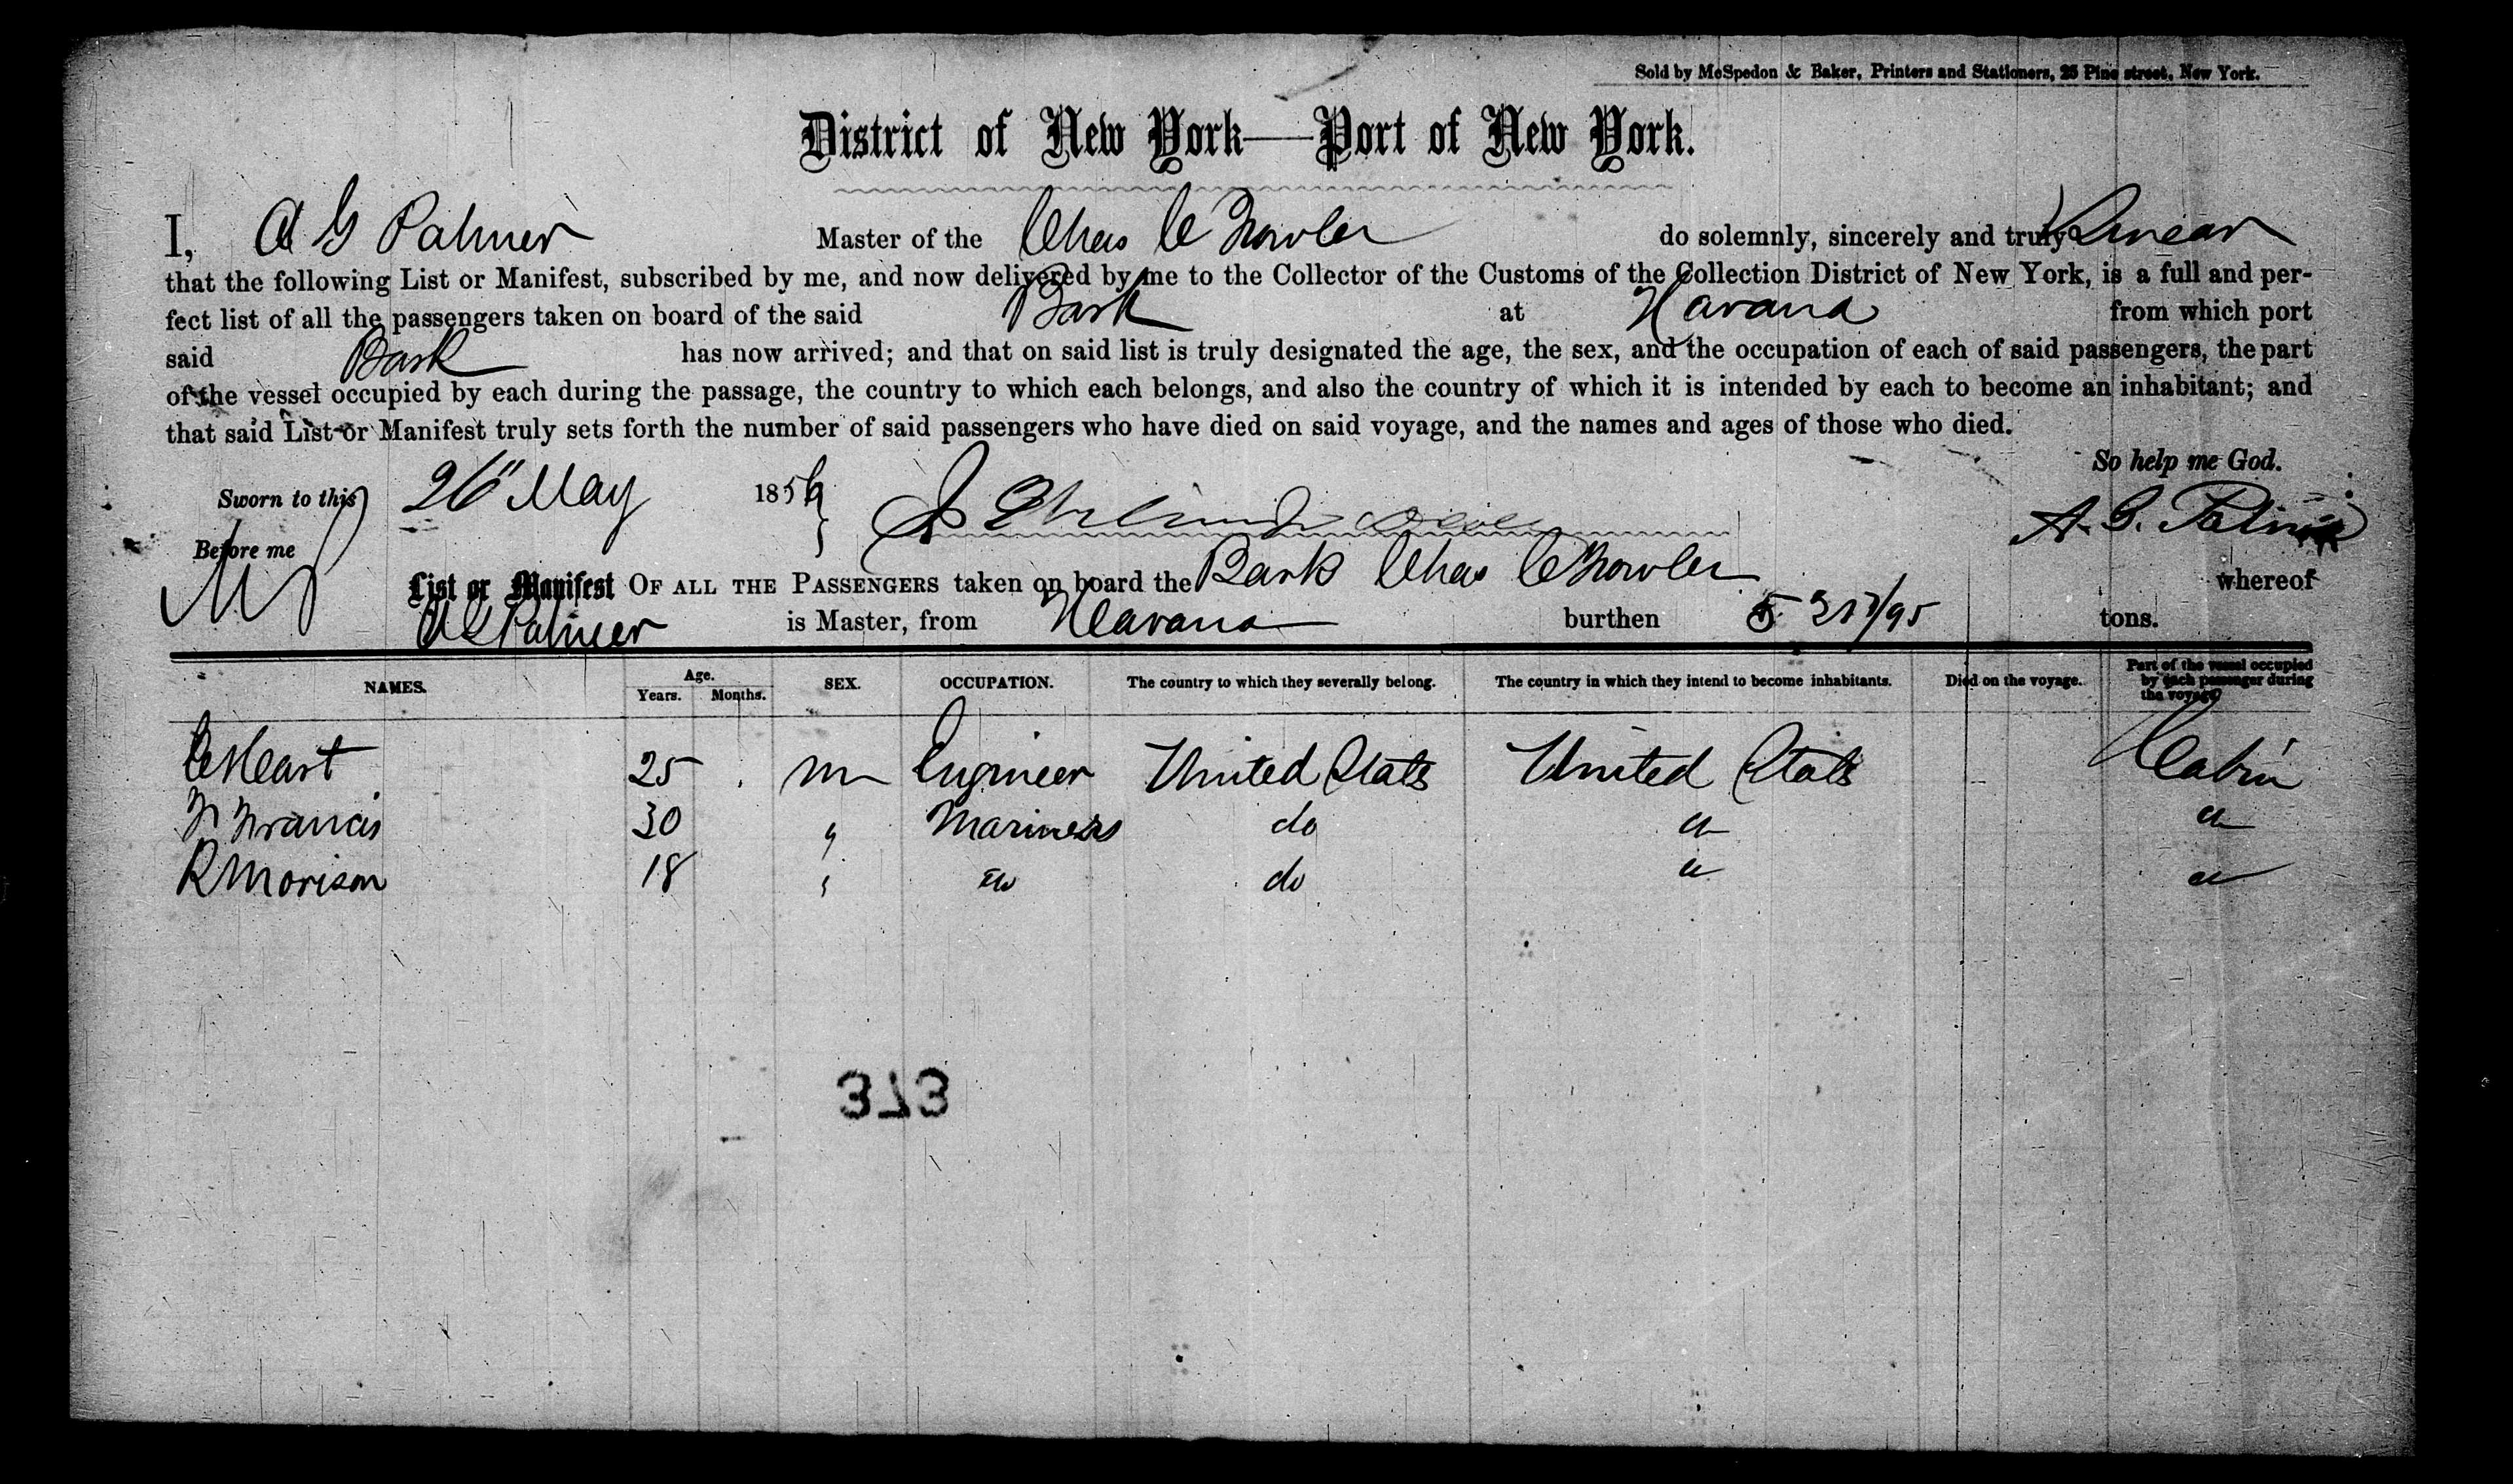 Sold by McSpedon & Baker, Printers and Stationers, 25 Pine street, New York.
District of New York—Port of New York.
I, A G Palmer Master of the Chas C Fowler do solemnly, sincerely and truly Swear
that the following List or Manifest, subscribed by me, and now delivered by me to the Collector of the Customs of the Collection District of New York, is a full and per-
fect list of all the passengers taken on board of the said Bark at Havana from which port
said Bark has now arrived; and that on said list is truly designated the age, the sex, and the occupation of each of said passengers, the part
of the vessel occupied by each during the passage, the country to which each belongs, and also the country of which it is intended by each to become an inhabitant; and
that said List or Manifest truly sets forth the number of said passengers who have died on said voyage, and the names and ages of those who died.
So help me God.
Sworn to this 26" May 185
A. G. Palmer
Before me
List or Manifest OF ALL THE PASSENGERS taken on board the Bark Chas C Fowler whereof
A G Palmer is Master, from Havana burthen tons.
NAMES. Age. Years. Months. SEX. OCCUPATION. The country to which they severally belong. The country in which they intend to become inhabitants. Died on the voyage. Part of the vessel occupied by each passenger during the voyage
C Heart 25 m Engineer United States United States Cabin
F Francis 30 " Mariners do " "
R Morison 18 " " do " "
373